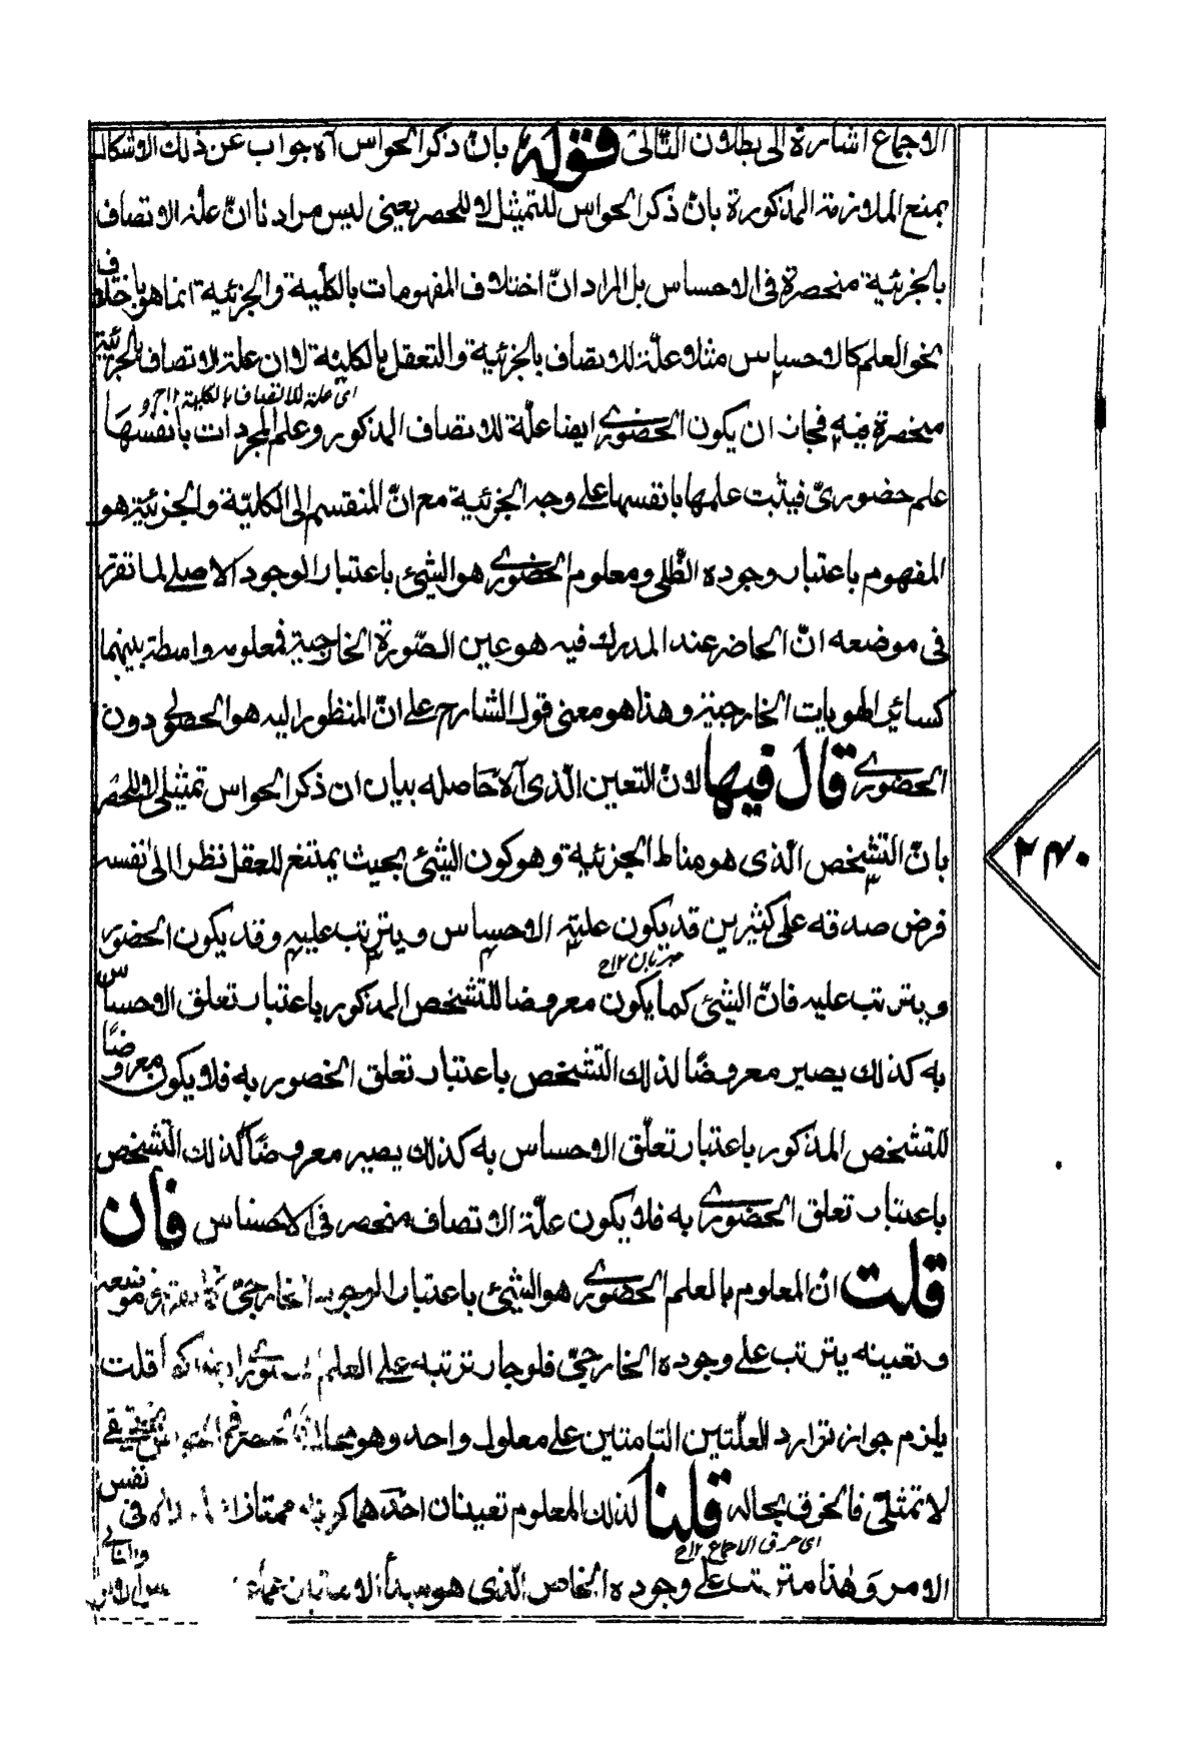 الاجماع اشارة الى بطلان التالى قوله بان ذكر الحواس آه جواب عن ذلك الاشكال
بمنع الملازمة المذكورة بان ذكر الحواس للتمثيل لا للحصر يعنى ليس مرادنا ان علة الاتصاف
بالجزئية منحصرة فى الاحساس بل المراد ان اختلاف المفهومات بالكلية والجزئية انما هو باختلاف
نحو العلم كالاحساس مثلا علة للاتصاف بالجزئية والتعقل بالكلية لا ان علة الاتصاف بالجزئية
اى علة للاتصاف بالكلية ١٢
منحصرة فيه فجاز ان يكون الحضورى ايضا علة للاتصاف المذكور وعلم المجردات بانفسها
علم حضورى فيثبت علمها بانفسها على وجه الجزئية مع ان المنقسم الى الكلية والجزئية هو
المفهوم باعتبار وجوده الظلى ومعلوم الحضورى هو الشئ باعتبار الوجود الاصلى لما تقرر
فى موضعه ان الحاضر عند المدرك فيه هو عين الصورة الخارجية فمعلومه واسطة بينهما
كسائر الهويات الخارجية وهذا هو معنى قول الشارح على ان المنظور اليه هو الحصولى دون
الحضورى قال فيها لان التعين الذى آه حاصله بيان ان ذكر الحواس تمثيلى لا للحصر
بان التشخص الذى هو مناط الجزئية وهو كون الشئ بحيث يمتنع للعقل نظرا الى نفسه
فرض صدقه على كثيرين قد يكون علته الاحساس ويترتب عليه وقد يكون الحضور
ويترتب عليه فان الشئ كما يكون معروضا للتشخص المذكور باعتبار تعلق الاحساس
به كذلك يصير معروضًا لذلك التشخص باعتبار تعلق الحضور به فلا يكون معروضًا
للتشخص المذكور باعتبار تعلق الاحساس به كذلك يصير معروضًا لذلك التشخص
باعتبار تعلق الحضورى به فلا يكون علة الاتصاف منحصر فى الاحساس فان
قلت ان المعلوم بالعلم الحضورى هو الشئ باعتبار الوجود الخارجى فى موضعه
وتعينه يترتب على وجوده الخارجى فلو جاز ترتبه على العلم قلت
يلزم جواز توارد العلتين التامتين على معلول واحد وهو محال الحصر حقيقى
لا تمثيلى فالخرق بحاله قلنا لذلك المعلوم تعينان احدهما كونه ممتازا فى نفس
اى خرق الاجماع ١٢
الامر وهذا مترتب على وجوده الخاص الذى هو مبدأ الا
٢٤٠